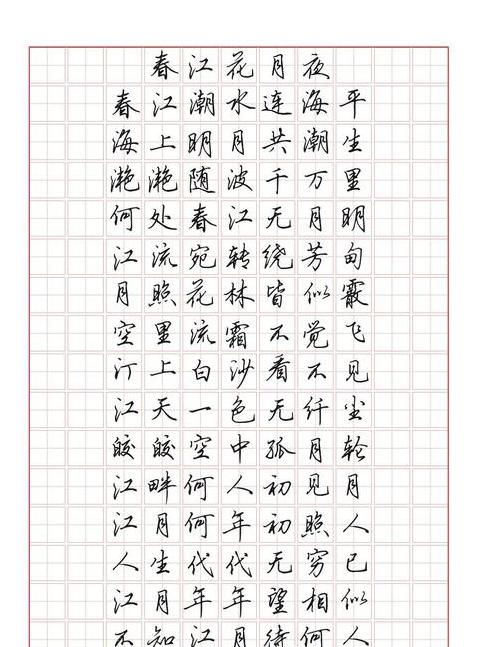 春江花月夜
春江潮水连海平
海上明月共潮生
滟滟随波千万里
何处春江无月明
江流宛转绕芳甸
月照花林皆似霰
空里流霜不觉飞
汀上白沙看不见
江天一色无纤尘
皎皎空中孤月轮
江畔何人初见月
江月何年初照人
人生代代无穷已
江月年年望相似
不知江月待何人